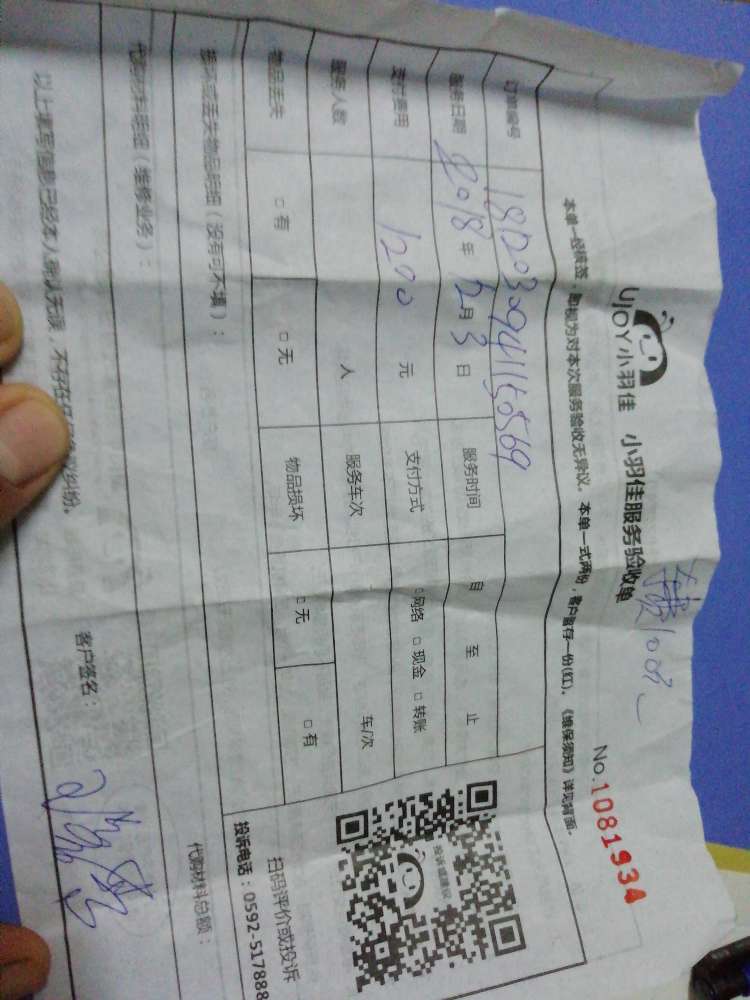 UJOY小羽佳 小羽佳服务验收单
No.1081934
本单一经核签，即视为对本次服务验收无异议。本单一式两份，客户留存一份(红)。《维保须知》详见背面。
订单编号
服务日期 2018 年 12 月 3 日 服务时间 自 至 止
支付费用 1200 元 支付方式 □网络 □现金 □转账
服务人数 人 服务车次 车/次
物品丢失 □有 □无 物品损坏 □无 □有
损坏或丢失物品明细（没有可不填）：
代购材料明细（维修业务）： 代购材料总额：
投诉或建议
扫码评价或投诉
投诉电话：0592-517888
以上填写信息已经本人确认无误，不存在任何
纠纷。 客户签名：